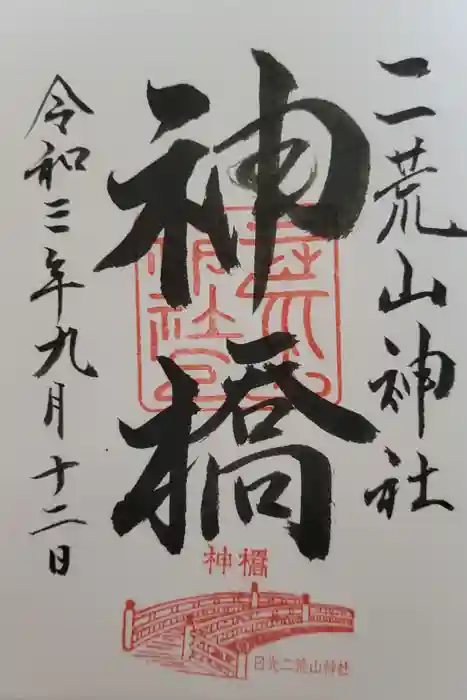 二荒山神社
神橋
令和三年九月十二日
神橋
日光二荒山神社